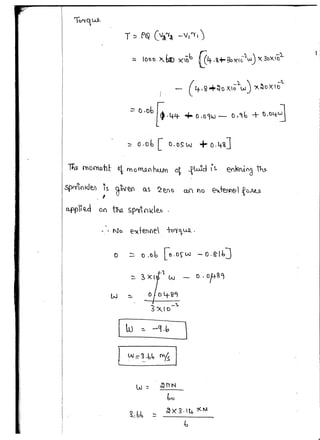 Torque
T = ρQ (V₂r₂ - V₁r₁)
= 1000 × 60 × 10⁻⁶ [(4.8 + 30×10⁻²ω) × 30×10⁻²
- (4.8 + 20×10⁻²ω) × 20×10⁻²
= 0.06 [1.44 + 0.09ω - 0.96 + 0.04ω]
= 0.06 [ 0.05ω + 0.48]
The moment of momentum of fluid is entering the
sprinkler is given as zero an no external forces
applied on the sprinkler.
∴ No external torque.
0 = 0.06 [0.05ω - 0.816]
= 3×10⁻³ ω - 0.0489
ω = 0.0489
3×10⁻³
ω = -9.6
ω = 3.66 m/s
ω = 2πN
60
3.66 = 2×3.14×N
6